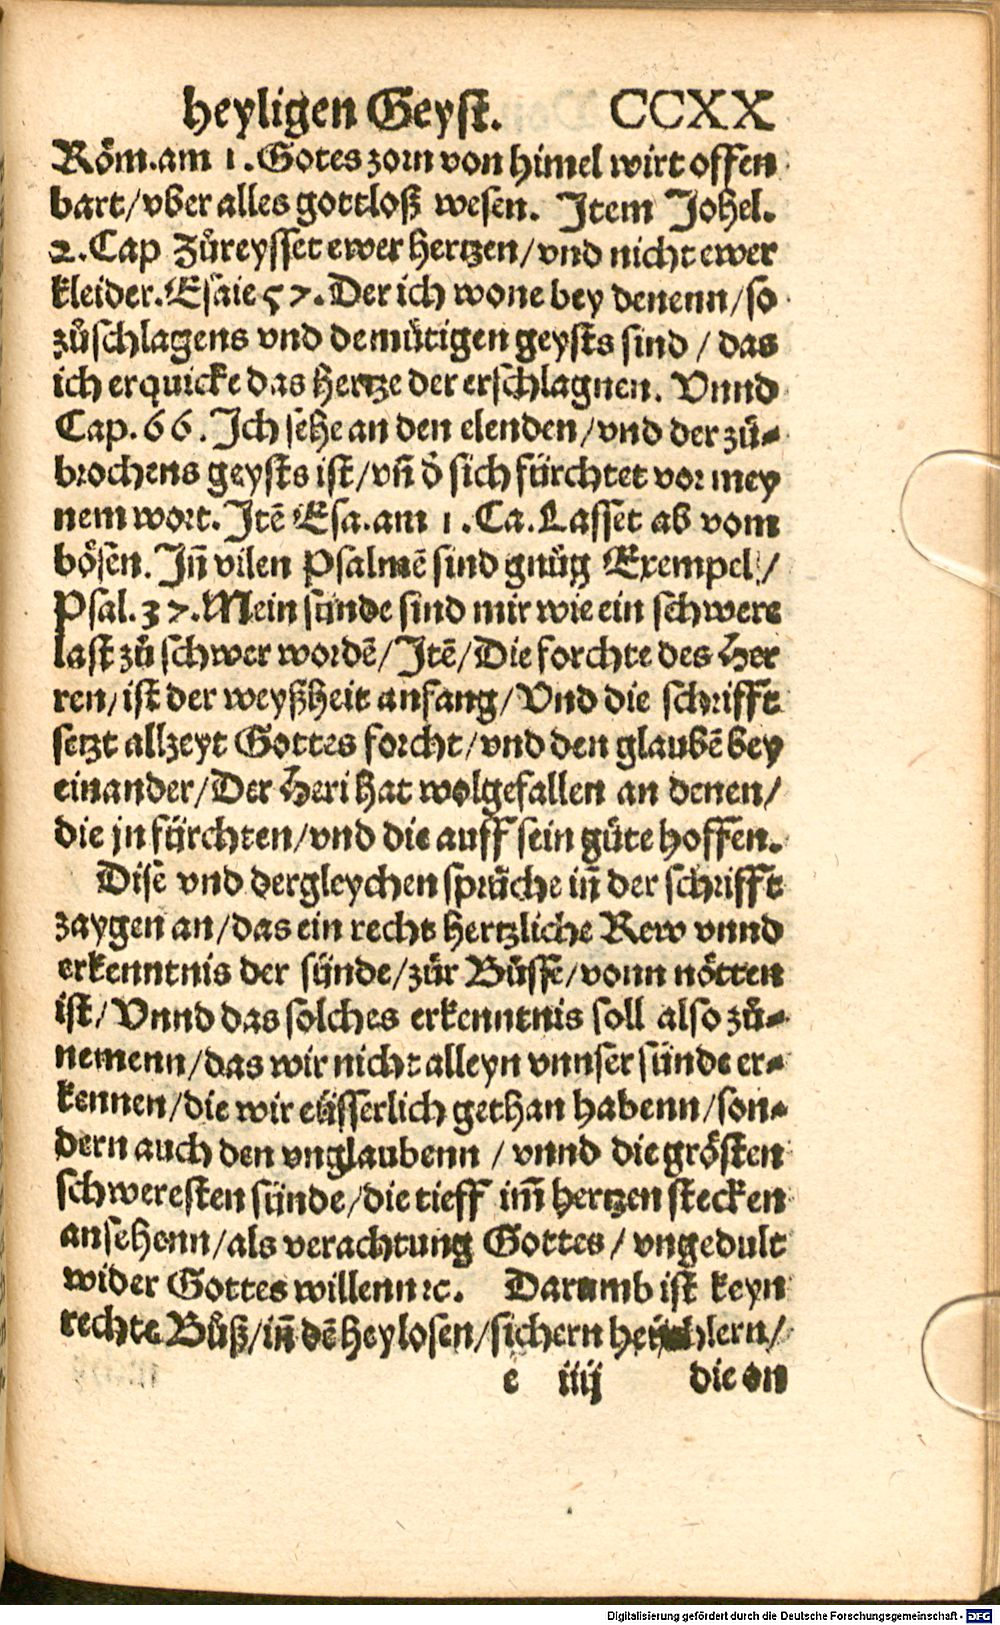 heyligen Geyst. CCXX
Röm.am 1. Gotes zorn von himel wirt offen
bart/vber alles gottloß wesen. Item Johel.
2. Cap Zůreysset ewer hertzen/vnd nicht ewer
kleider. Esaie 57. Der ich wone bey denenn/so
zůschlagens vnd demütigen geysts sind / das
ich erquicke das hertze der erschlagnen. Vnnd
Cap. 66. Ich sehe an den elenden/vnd der zů-
brochens geysts ist/vñ d̄ sich fürchtet vor mey
nem wort. Itē Esa.am 1. Ca. Lasset ab vom
bösen. Iñ vilen Psalmē sind gnůg Exempel/
Psal. 37. Mein sünde sind mir wie ein schwere
last zů schwer wordē/Itē/Die forchte des Her
ren/ist der weyßheit anfang/Vnd die schrifft
setzt allzeyt Gottes forcht/vnd den glaubē bey
einander/Der Herr hat wolgefallen an denen/
die jn fürchten/vnd die auff sein güte hoffen.
Disē vnd dergleychen sprüche iñ der schrifft
zaygen an/das ein recht hertzliche Rew vnnd
erkenntnis der sünde/zůr Bůsse/vonn nötten
ist/Vnnd das solches erkenntnis soll also zů-
nemenn/das wir nicht alleyn vnnser sünde er-
kennen/die wir eüsserlich gethan habenn/son-
dern auch den vnglaubenn / vnnd die grösten
schweresten sünde/die tieff im̃ hertzen stecken
ansehenn/als verachtung Gottes / vngedult
wider Gottes willenn ꝛc. Darumb ist keyn
rechte Bůß/iñ dē heylosen/sichern heüchlern/
e iiij die on
Digitalisierung gefördert durch die Deutsche Forschungsgemeinschaft - DFG